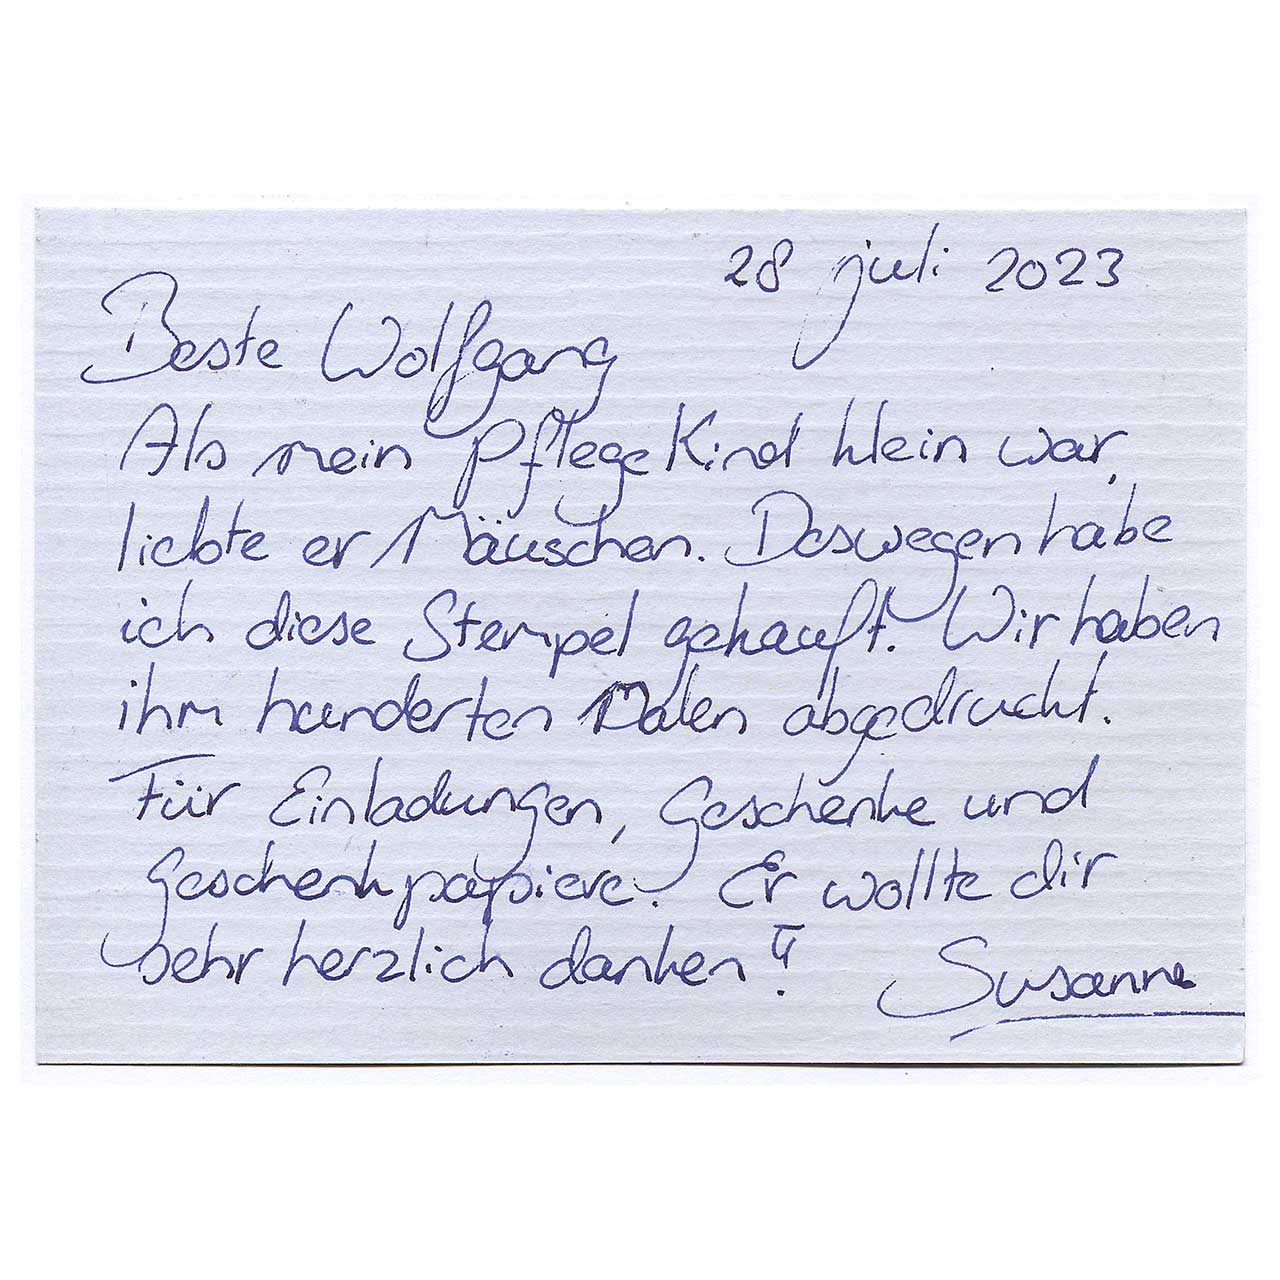 28 juli 2023
Beste Wolfgang
Als mein Pflegekind klein war,
liebte er Mäuschen. Deswegen habe
ich diese Stempel gekauft. Wir haben
ihm hunderten Malen abgedruckt.
Für Einladungen, Geschenke und
Geschenkpapiere. Er wollte dir
sehr herzlich danken!
Susanne